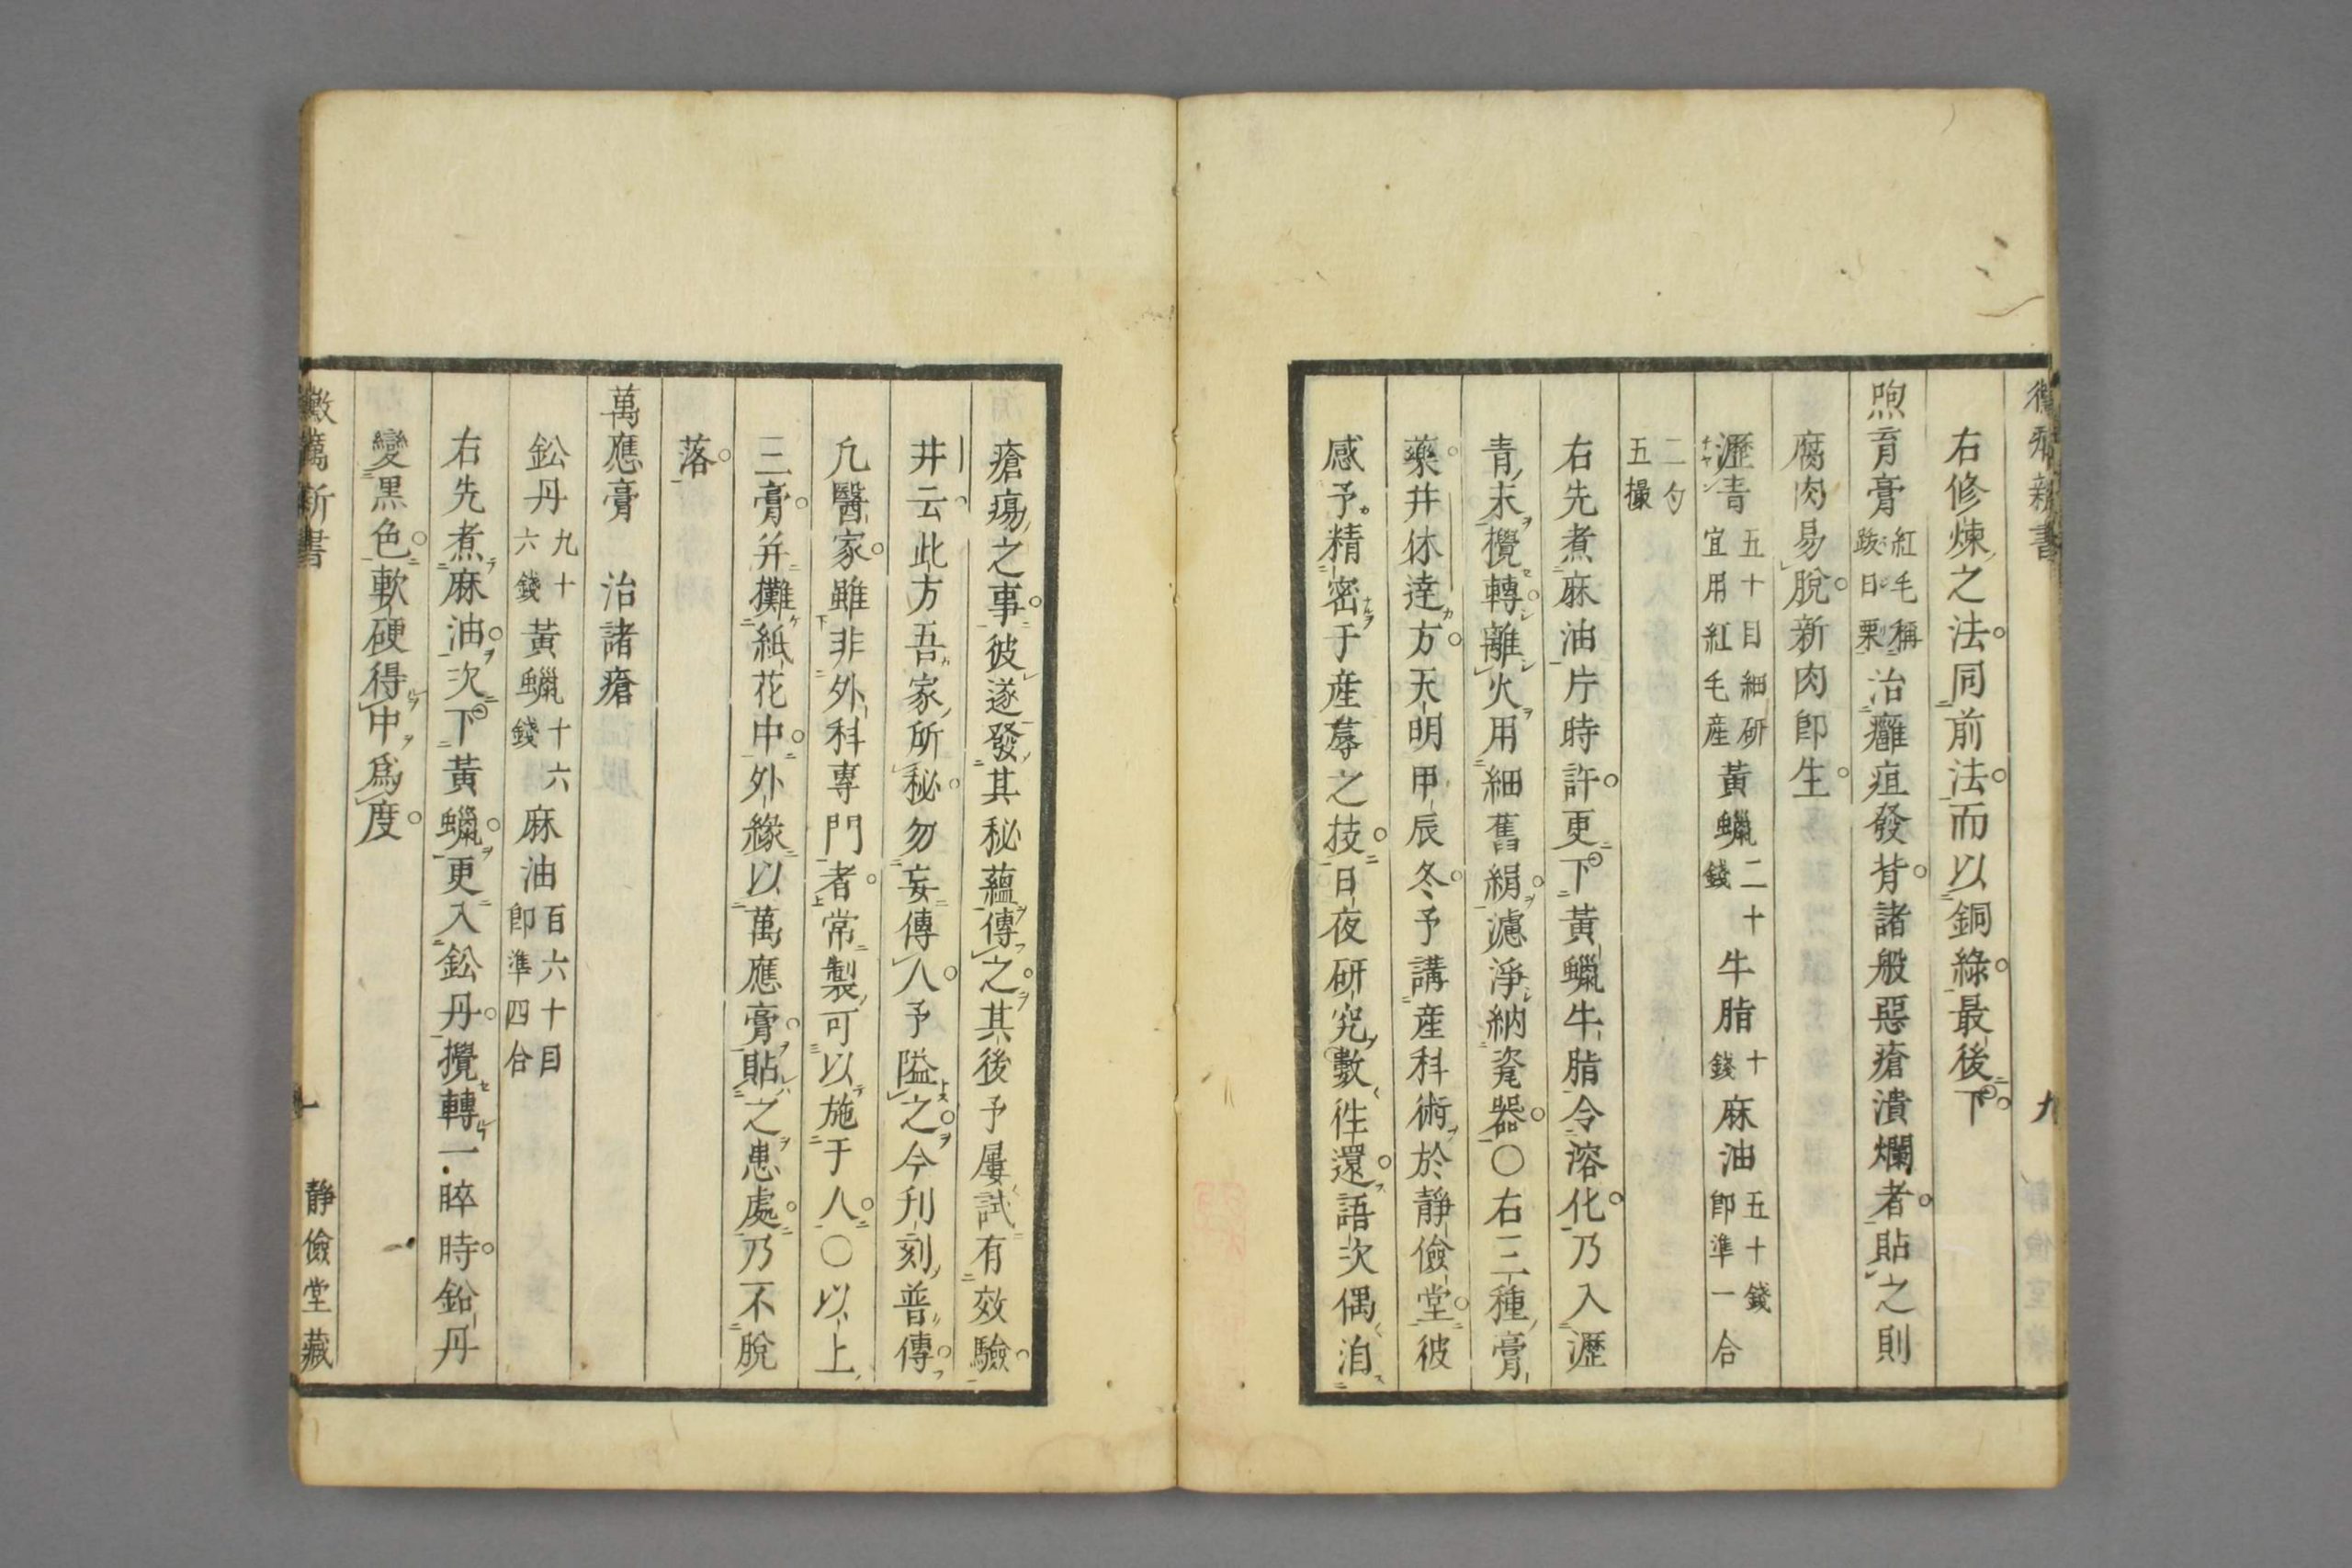 新書
九
右修煉之法同前法而以銅綠最後下
煦育膏 紅毛稱跋日栗 治癰疽發背諸般惡瘡潰爛者貼之則
腐肉易脫新肉即生
瀝青 五十目細研宜用紅毛産 黃蠟 二十錢 牛脂 十錢 麻油 五十錢即準一合
二勺五撮
右先煮麻油片時許更下黃蠟牛脂令溶化乃入瀝
青末攪轉離火用細舊絹濾淨納瓷器○右三種膏
藥井休逹方天明甲辰冬予講産科術於靜儉堂彼
感予精密于産蓐之技日夜研究數徃還語次偶洎
瘡瘍之事彼遂發其秘蘊傳之其後予屢試有效驗
井云此方吾家所秘勿妄傳人予隘之今刋刻普傳
凡醫家雖非外科專門者常製可以施于人○以上
三膏并攤紙花中外緣以萬應膏貼之患處乃不脫
落
萬應膏 治諸瘡
鈆丹 九十六錢 黃蠟 十六錢 麻油 百六十目即準四合
右先煮麻油次下黃蠟更入鈆丹攪轉一晬時鉛丹
變黑色軟硬得中爲度
黴萬新書
靜儉堂藏